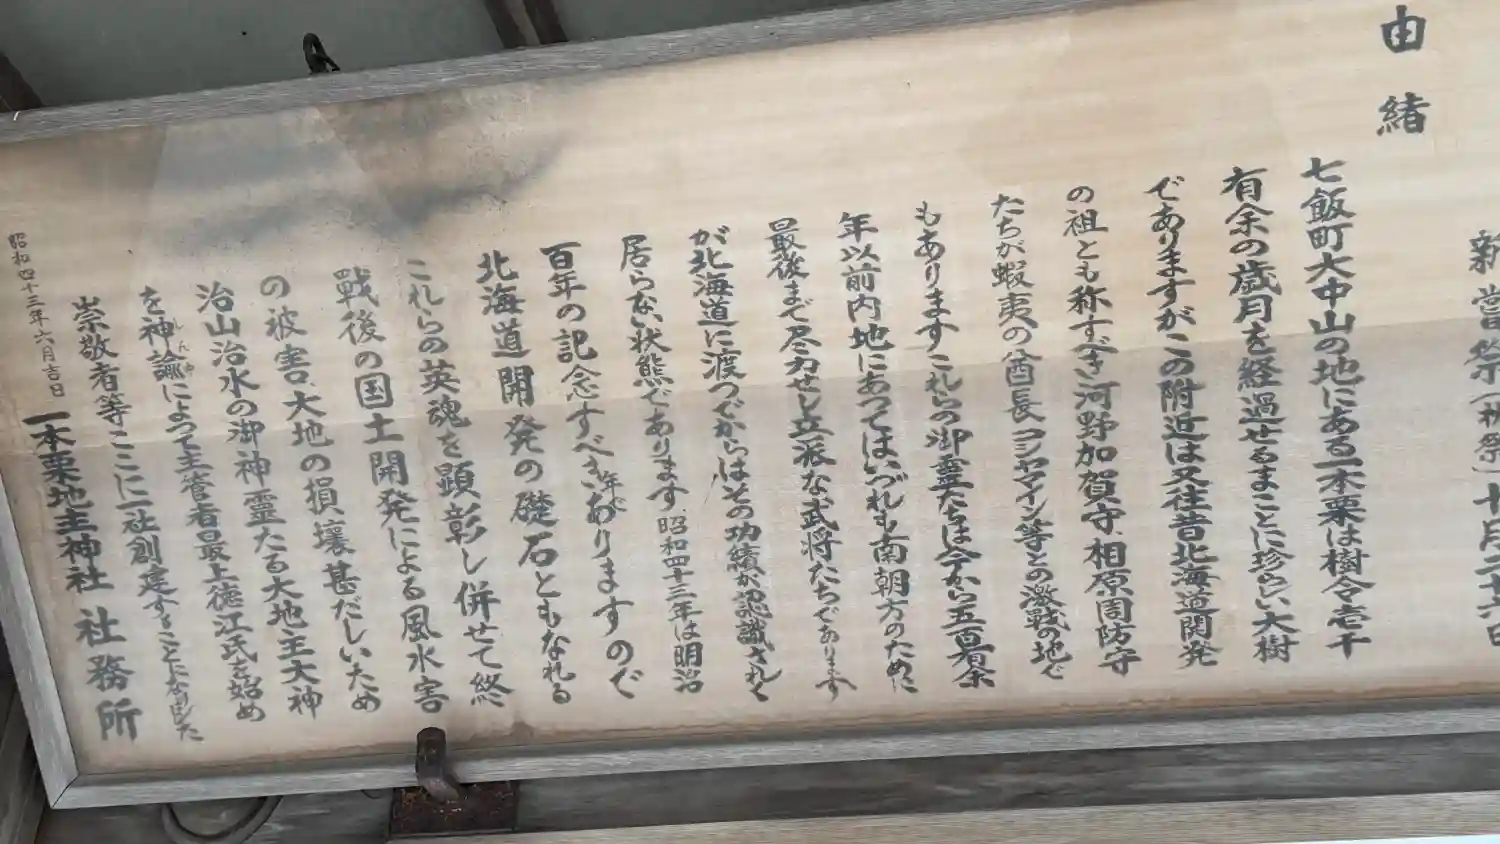 新嘗祭(秋祭)十月二十六日
由緒
七飯町大中山の地にある一本栗は樹令壱千
有余の歳月を経過せるまことに珍らしい大樹
でありますがこの附近は又往昔北海道開発
の祖とも称すべき河野加賀守、相原周防守
たちが蝦夷の酋長コシャマイン等との激戦の地で
もありますこれらの御霊たちは今から五百有余
年以前内地にあつてはいづれも南朝方のために
最後まで尽力せし立派な武将たちであります
が北海道に渡つてからはその功績が認識されて
居らない状態であります、昭和四十三年は明治
百年の記念すべき年でありますので
北海道開発の礎石ともなれる
これらの英魂を顕彰し併せて終
戦後の国土開発による風水害
の被害、大地の損壊甚だしいため
治山治水の御神霊たる大地主大神
を神諭しんゆによって主管者最上徳江氏を始め
崇敬者等ここに一社創建することになりました
昭和四十三年六月吉日
一本栗地主神社 社務所